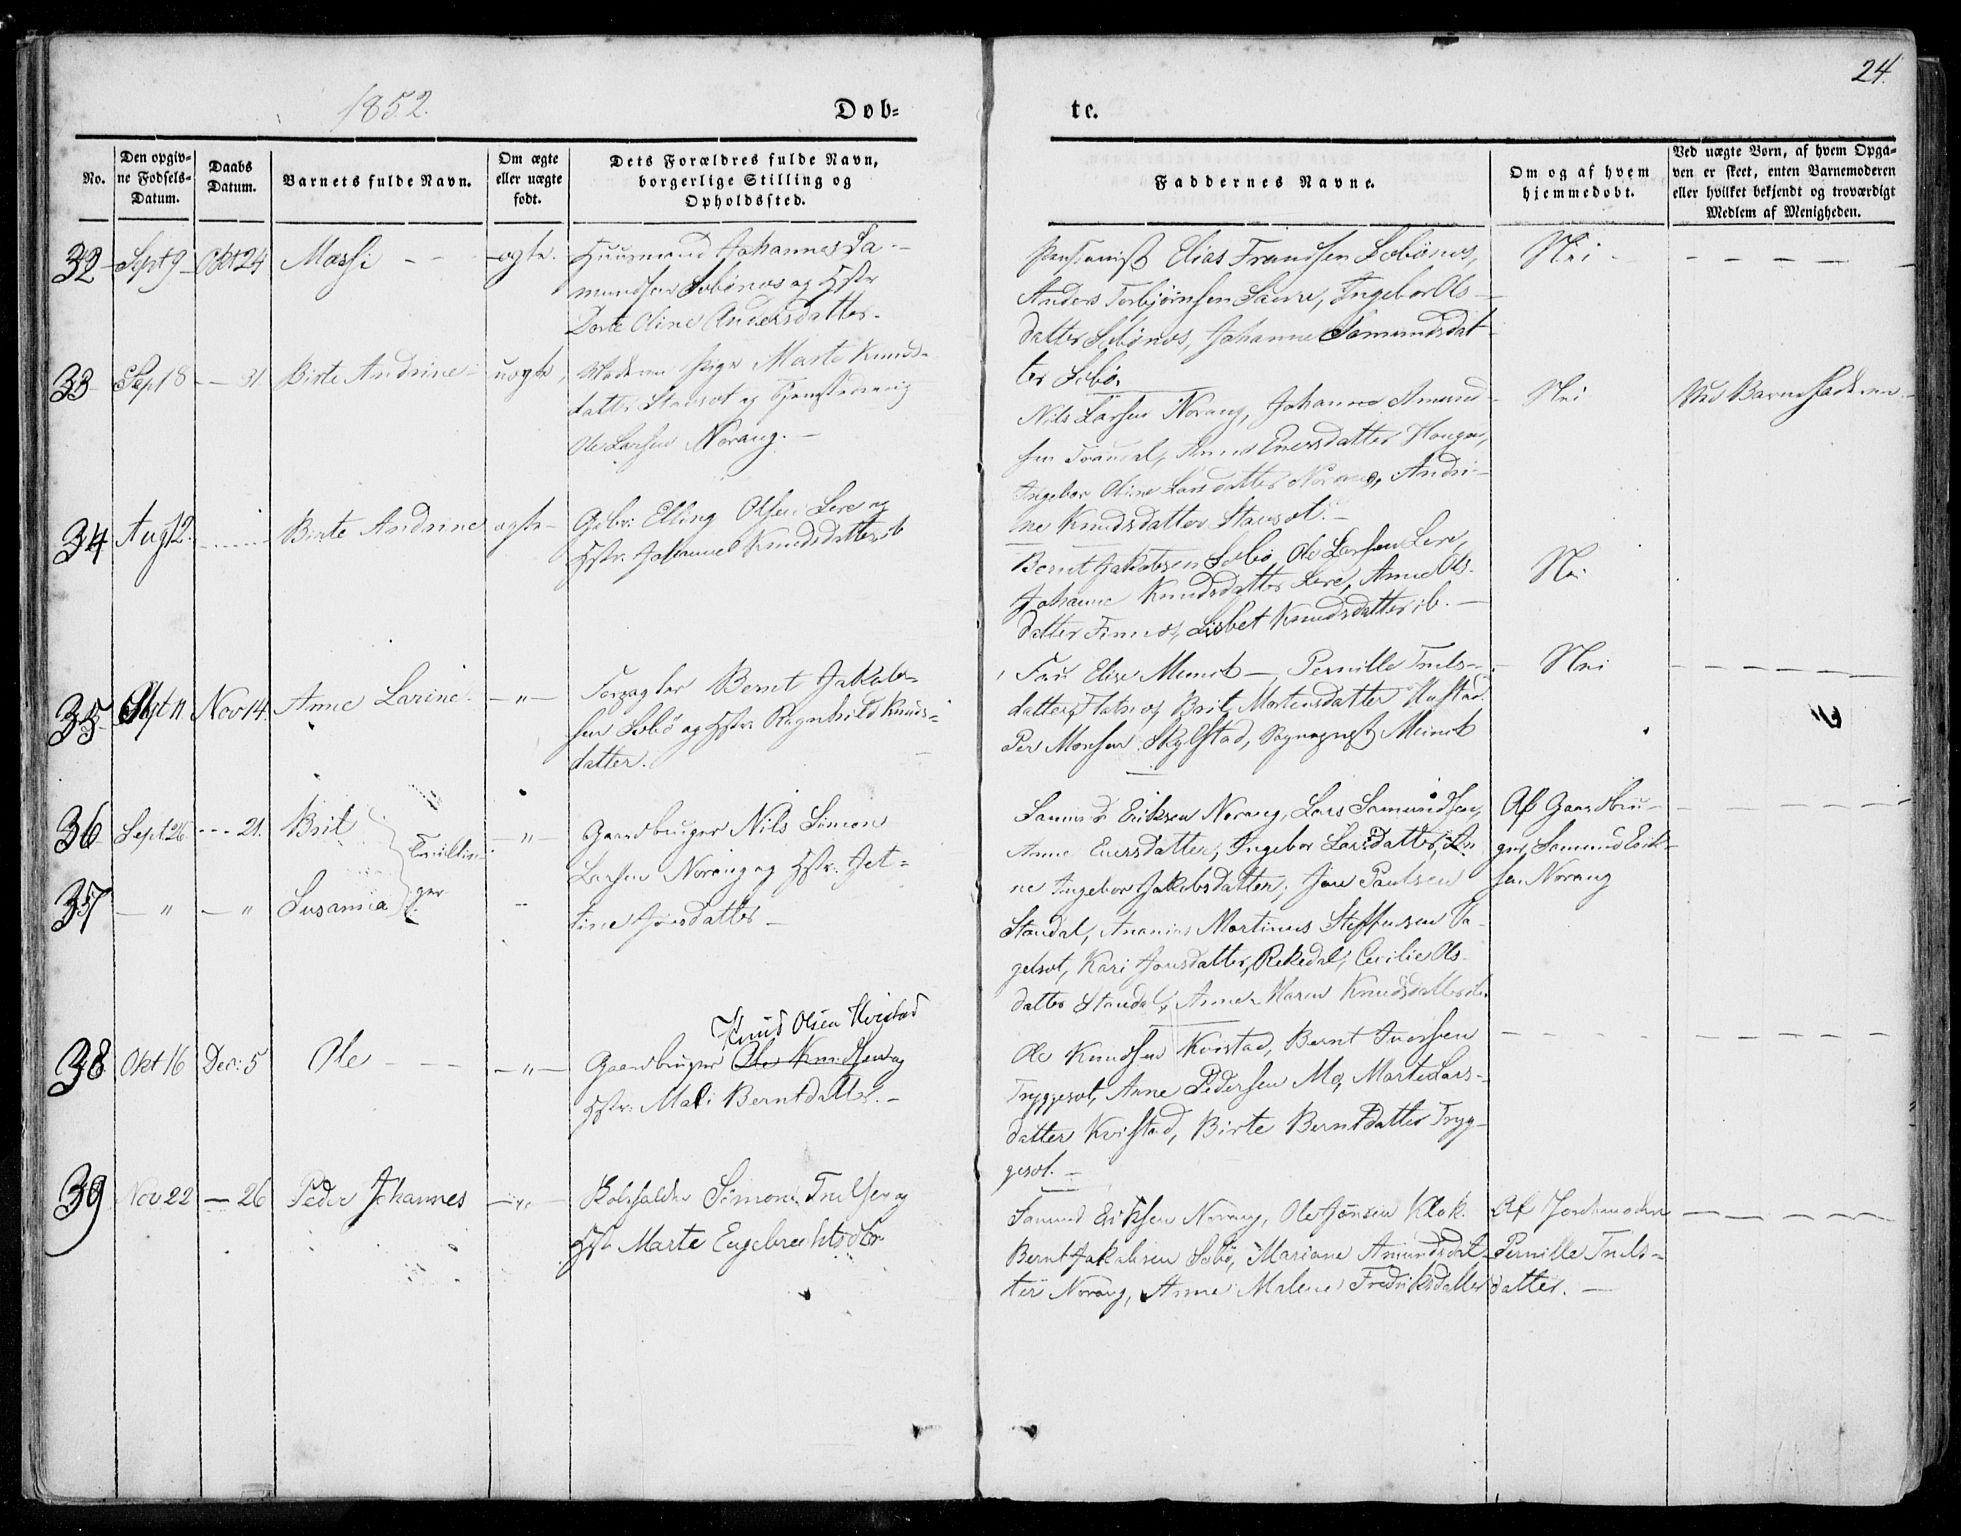 1852.
Døb=
te.
24.
No.
Den opgiv=
ne Fødsels=
Datum.
Daabs
Datum.
Barnets fulde Navn.
Om ægte
eller uægte
født.
Dets Forældres fulde Navn,
borgerlige Stilling og
Opholdssted.
Faddernes Navne.
Om og af hvem
hjemmedøbt.
Ved uægte Børn, af hvem Opga=
ven er skeet, enten Barnemoderen
eller hvilket bekjendt og troværdigt
Medlem af Menigheden.
32 Sept 9 Okt 24 Massi ægte.
Huusmand Johannes Sa-
mundsen Sebønes og Hstr
Dorte Oline Andersdatter.
Elias Frandsen Sebønes,
Anders Torbjørnsen Sævre, Ingebor Ols-
datter Sebønes, Johanne Samundsdat-
ter Sebø.
Nei
33 Sept 8 — 31 Birte Andrine uægte
Moderen Pige Marte Knuds-
datter Stavset og
Ole Larsen Norang.
Nils Larsen Norang, Johannes Amund-
sen Tranndal, Anne Enersdatter
Ingebor Oline Larsdatter Norang, Andri-
ne Knudsdatter Stavset.
Nei
Ved Barnefaderen
34 Aug 12. Birte Andrine ægte
Gdbr: Elling Olsen Lere og
Hstr. Johanne Knudsdatter ib
Bernt Jakobsen Sebø, Ole Larsen Lere,
Johanne Knudsdatter Lere, Anne Ols-
datter Finnes, Lisbet Knudsdatter ib.
Nei
35 Sept 11 Nov 14. Anne Larine. — " —
Forpagter Bernt Jakob-
sen Sebø og Hstr. Ragnhild Knuds-
datter.
Fru Elise Munch —, Pernille Truls-
datter, Brit Martensdatter Hustad
Per Monsen Skylstad, Sogneprest Munch
Nei
36 Sept 26 --- 21. Brit
Tvillin
ger
— " —
Gaardbruger Nils Simon
Larsen Norang og Hstr. Jet-
tine Jonsdatter —
37 — " — " Susanna
Samund Eriksen Norang, Lars Samundsen,
Anne Enersdatter, Ingebor Larsdatter, An
ne Ingebor Jakobsdatter, Jon Paulsen
Standal, Ananias Martinus Steffensen Sa-
getset, Kari Jonsdatter, Rekedal, Cecilie Ols-
datter Standal, Anne Maren Knudsdatter ib.
Af Gaardbru-
ger Samund Erik-
sen Norang
38 Okt 16 Dec: 5 Ole — " —
Knud Olsen Kvistad
Gaardbruger Ole Knudsen og
Hstr: Mali Berntdatter. —
Ole Knudsen Kvistad, Bernt Iversen
Tryggeset, Anne Pedersen Mo, Marte Lars-
datter Kvistad, Birte Berntdatter Tryg-
geset. —
39 Nov 22 — 26 Peder Johannes — " —
Simon Trulsen og
Hstr Marte Engebrechtsdtr
Samund Eriksen Norang, Ole Jonsen Klok.
Bernt Jakobsen Sebø, Mariane Amundsdat-
ter Norang, Anne Malene Fredriksdatter
Af Jordemoder
Pernille Truls-
datter. —